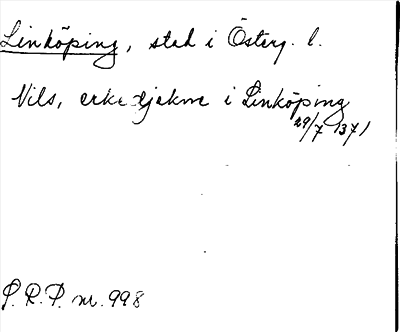 Linköping, stad i Österg. l.
Nils, erkedjekne i Linköping
29/7 1371
P. R. P. nr. 998